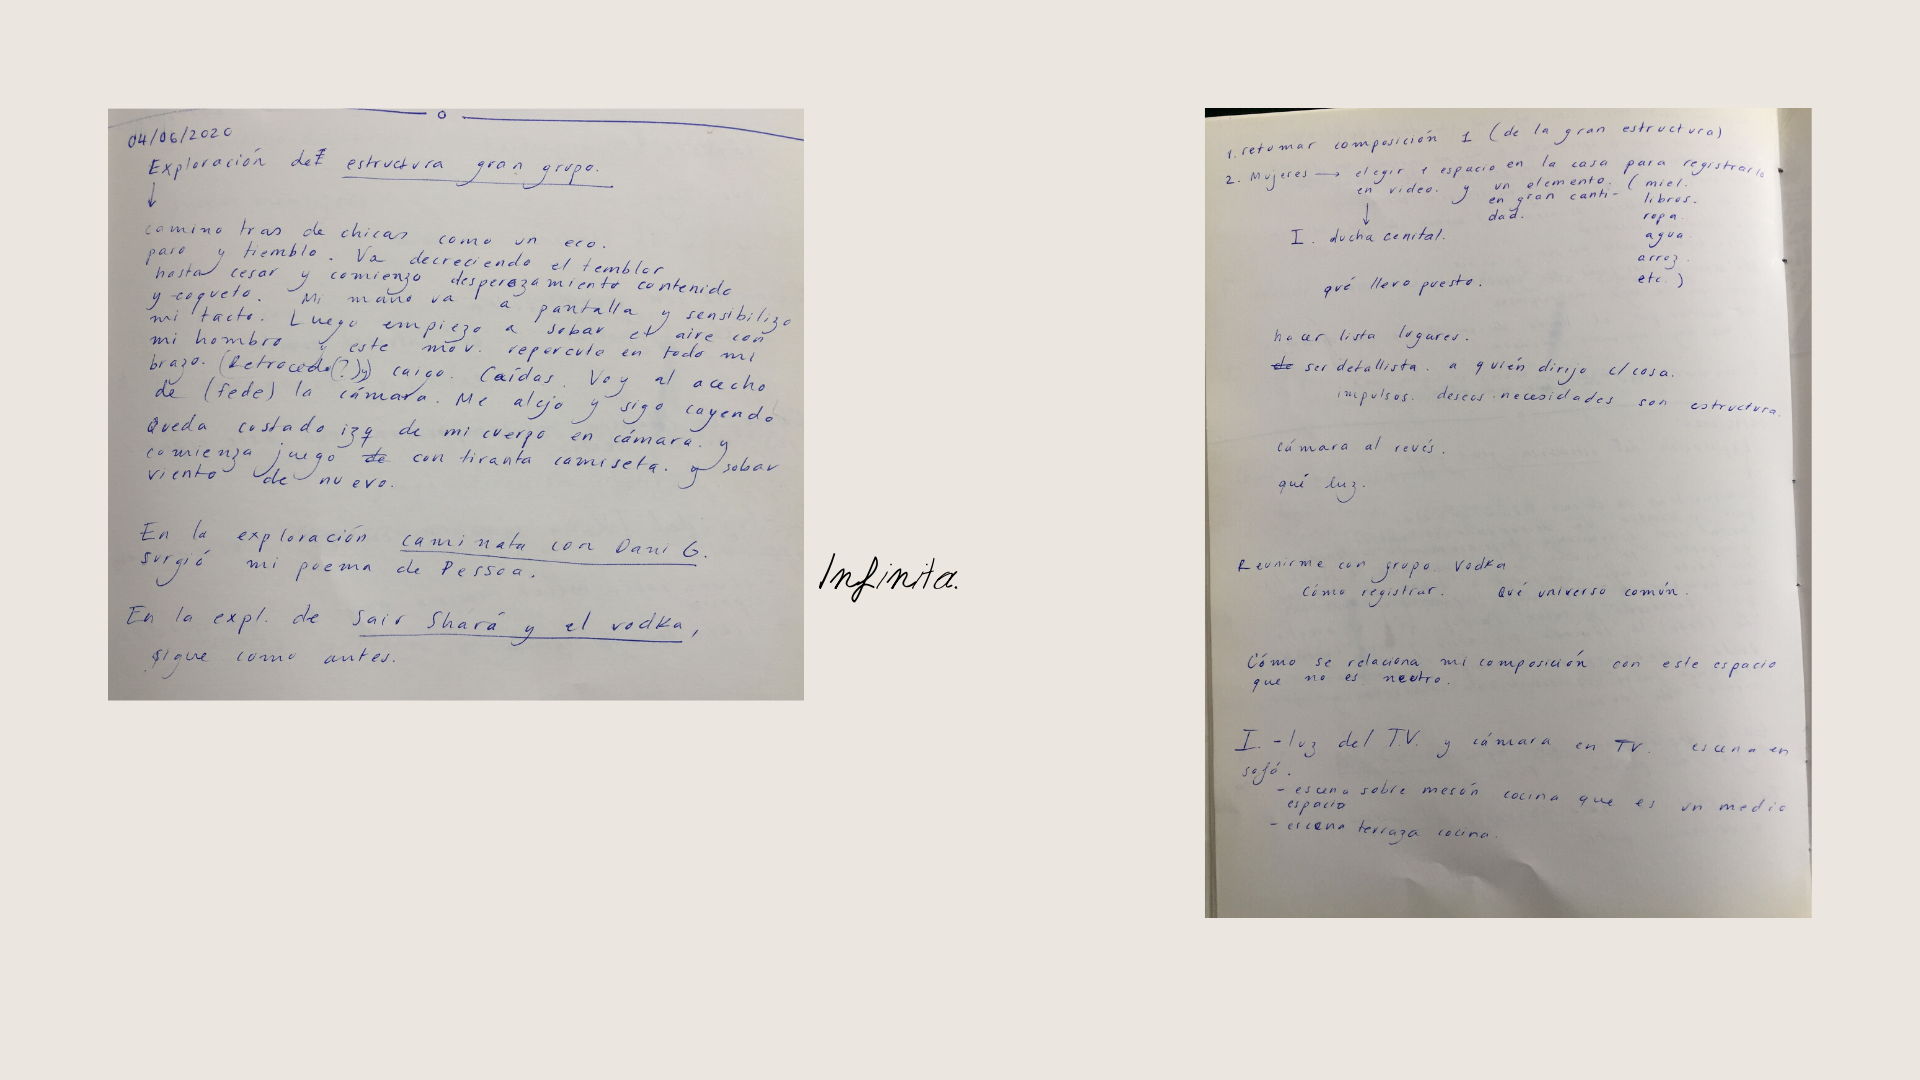 04/06/2020
Exploración de estructura gran grupo.
↓
camino tras de chicas como un eco.
paro y tiemblo. Va decreciendo el temblor
hasta cesar y comienzo desperezamiento contenido
y coqueto. Mi mano va a pantalla y sensibilizo
mi tacto. Luego empiezo a sobar el aire con
mi hombro y este mov. repercute en todo mi
brazo. (Retrocedo(?)y) caigo. Caídas. Voy al acecho
de (fede) la cámara. Me alejo y sigo cayendo
Queda costado izq de mi cuerpo en cámara. y
comienza juego de con tiranta camiseta. y sobar
viento de nuevo.
En la exploración caminata con Dani G.
surgió mi poema de Pessoa.
En la expl. de Sair Shará y el vodka,
sigue como antes.
Infinita.
1. retomar composición 1 (de la gran estructura)
2. Mujeres → elegir 1 espacio en la casa para registrarlo
en video. y un elemento. (miel.
en gran canti- libros.
dad. ropa.
↓
I. ducha cenital. agua
arroz.
qué llevo puesto. etc.)
hacer lista lugares.
de ser detallista. a quién dirijo c/cosa.
impulsos. deseos. necesidades son estructura.
cámara al revés.
qué luz.
Reunirme con grupo Vodka
Cómo registrar. Qué universo común.
Cómo se relaciona mi composición con este espacio
que no es neutro.
I. - luz del T.V. y cámara en TV. escena en
sofá.
- escena sobre mesón cocina que es un medio
espacio
- escena terraza cocina.